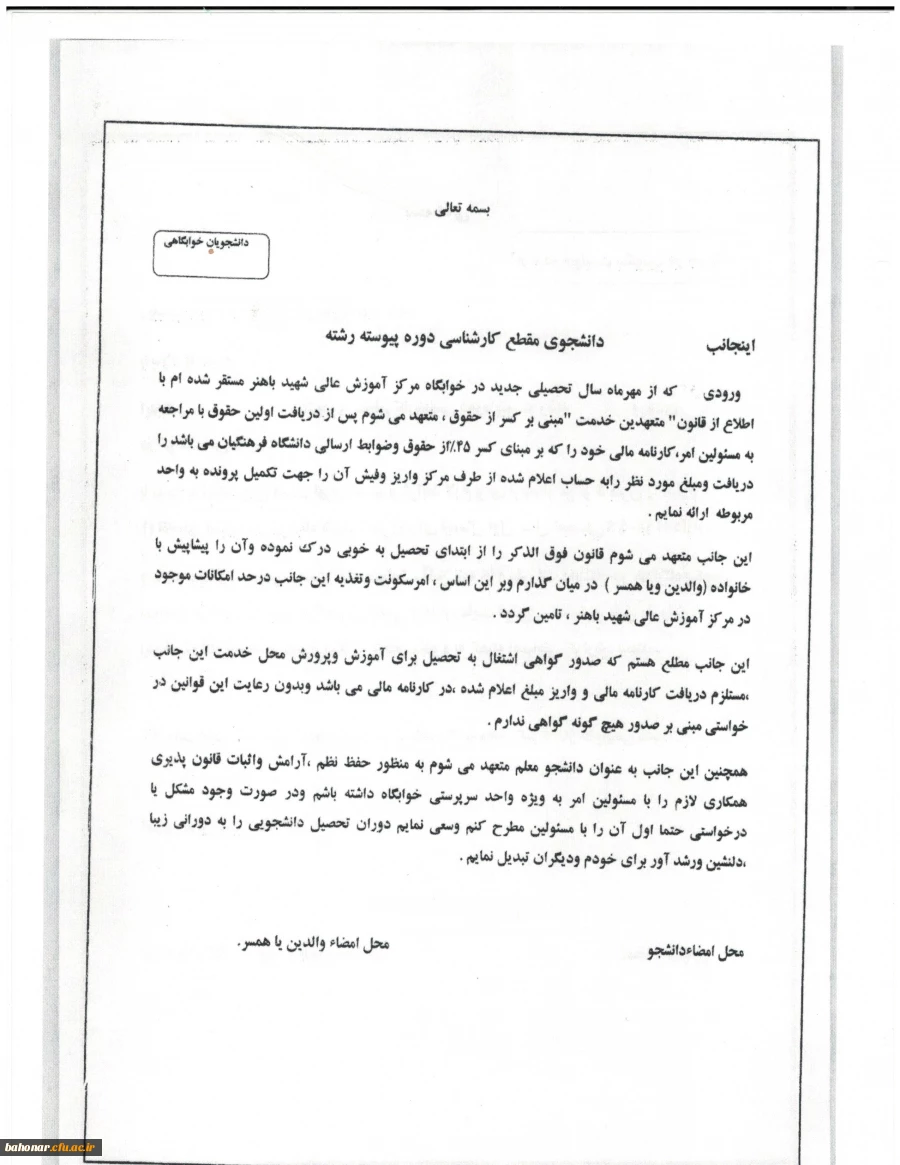 بسمه تعالی
دانشجویان خوابگاهی
اینجانب دانشجوی مقطع کارشناسی دوره پیوسته رشته
ورودی که از مهرماه سال تحصیلی جدید در خوابگاه مرکز آموزش عالی شهید باهنر مستقر شده ام با
اطلاع از قانون" متعهدین خدمت "مبنی بر کسر از حقوق ، متعهد می شوم پس از دریافت اولین حقوق با مراجعه
به مسئولین امر،کارنامه مالی خود را که بر مبنای کسر ۴۵٪از حقوق وضوابط ارسالی دانشگاه فرهنگیان می باشد را
دریافت ومبلغ مورد نظر رابه حساب اعلام شده از طرف مرکز واریز وفیش آن را جهت تکمیل پرونده به واحد
مربوطه ارائه نمایم .
این جانب متعهد می شوم قانون فوق الذکر را از ابتدای تحصیل به خوبی درک نموده وآن را پیشاپیش با
خانواده (والدین ویا همسر ) در میان گذارم وبر این اساس ، امرسکونت وتغذیه این جانب درحد امکانات موجود
در مرکز آموزش عالی شهید باهنر ، تامین گردد .
این جانب مطلع هستم که صدور گواهی اشتغال به تحصیل برای آموزش وپرورش محل خدمت این جانب
،مستلزم دریافت کارنامه مالی و واریز مبلغ اعلام شده ،در کارنامه مالی می باشد وبدون رعایت این قوانین در
خواستی مبنی بر صدور هیچ گونه گواهی ندارم .
همچنین این جانب به عنوان دانشجو معلم متعهد می شوم به منظور حفظ نظم ،آرامش واثبات قانون پذیری
همکاری لازم را با مسئولین امر به ویژه واحد سرپرستی خوابگاه داشته باشم ودر صورت وجود مشکل یا
درخواستی حتما اول آن را با مسئولین مطرح کنم وسعی نمایم دوران تحصیل دانشجویی را به دورانی زیبا
،دلنشین ورشد آور برای خودم ودیگران تبدیل نمایم .
محل امضاءدانشجو محل امضاء والدین یا همسر.
bahonar.cfu.ac.ir